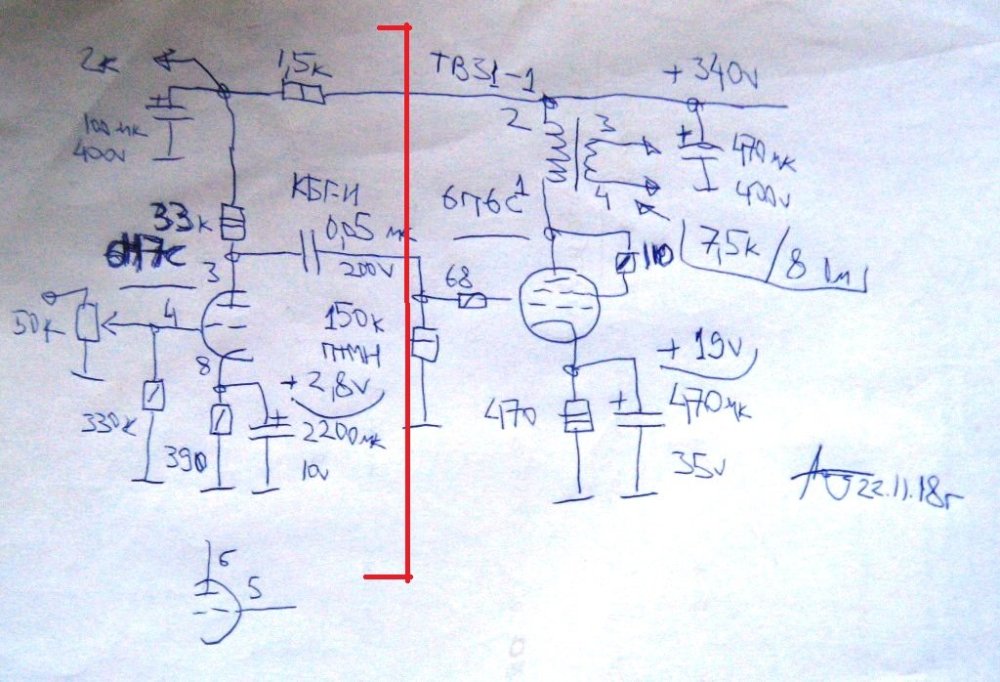 2к
1,5к
ТВЗ1-1
+340v
100мк
400v
2
3
4
1
470мк
400v
КБГ-И
6П6С
33к
0,05 мк
200v
110
7,5к/8 Om
3
68
50к
4
150к
ПТМН
8
+2,8v
+19v
330к
390
2200мк
10v
470
470мк
35v
22.11.18г
6
5